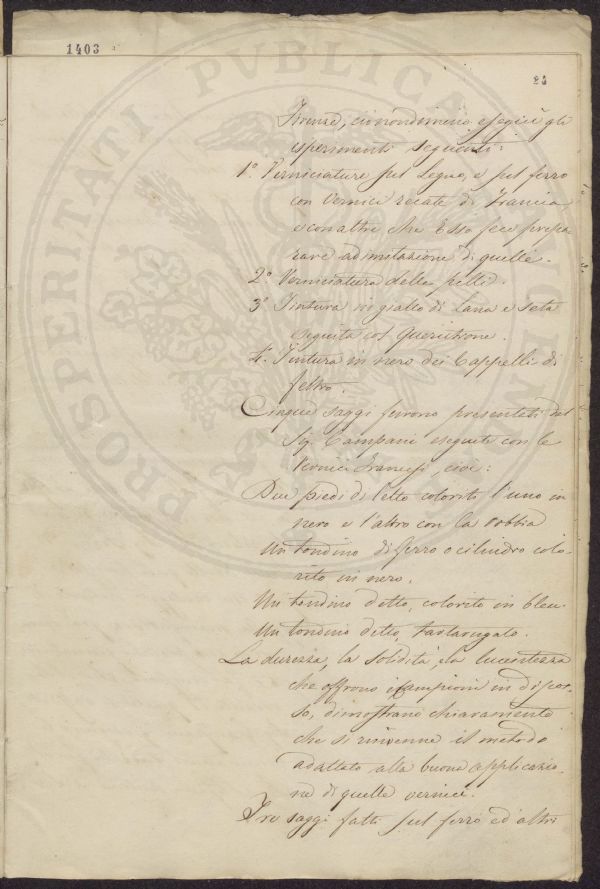 1403
84
Firenze, ciònondimeno eseguì gli
esperimenti seguenti:
1.° Verniciature sul Legno, e sul ferro
con Vernici recate di Francia
e con altre che Esso fece prepa
rare ad imitazione di quelle.
2.° Verniciatura delle pelli.
3.° Tintura in giallo di Lana e Seta
eseguita col Quercitrone.
4. Tintura in nero dei Cappelli di
feltro.
Cinque saggi furono presentati dal
Sig. Campani eseguiti con le
Vernici Francesi, cioè:
Due piedi di letto colorito l'uno in
nero e l'altro con la robbia
Un tondino di ferro o cilindro colo-
rito in nero.
Un tondino detto, colorito in bleu.
Un tondino detto, tartarugato.
La durezza, la solidità, e la lucentezza
che offrono i campioni in discor-
so, dimostrano chiaramente
che si rinvenne il metodo
adattato alla buona applicazio-
ne di quelle vernici.
Tre saggi fatti sul ferro ed altri
PROSPERITATI PUBLICAE